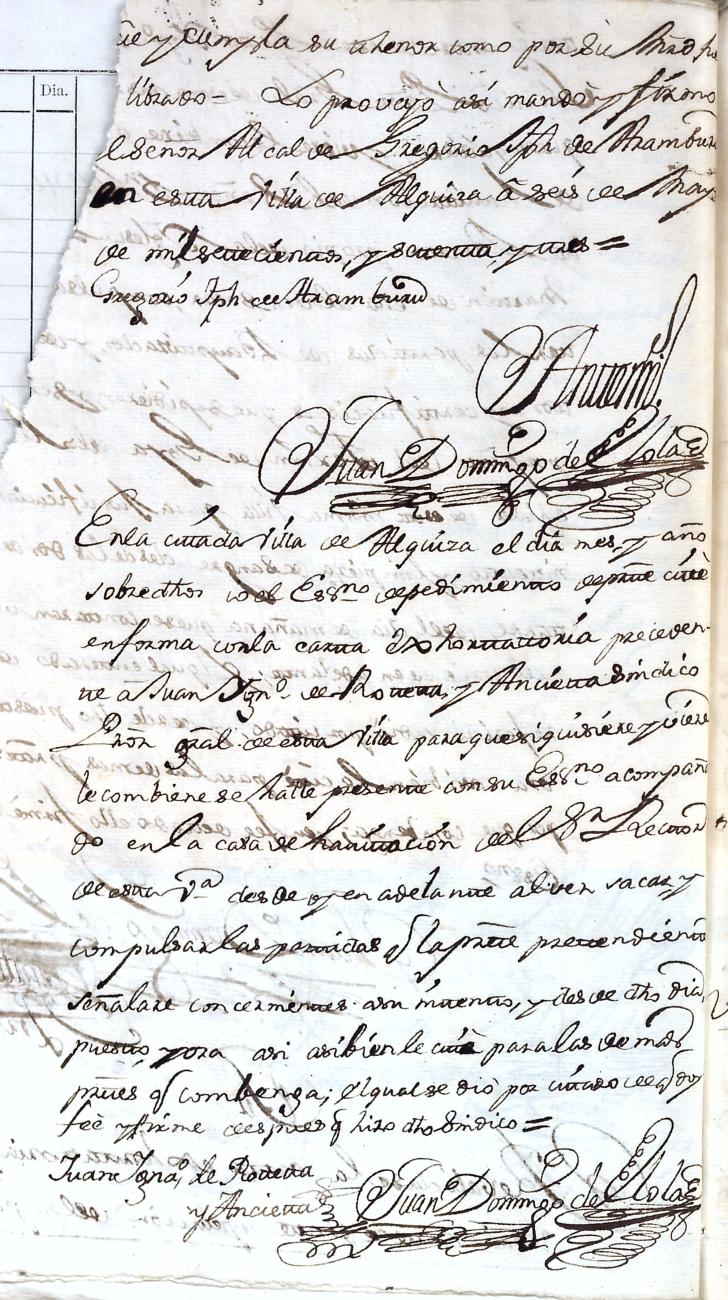 Dia.
y cumpla su thenor como por su
librado = Lo proveyò asi mandò y firmo
el Señor Alcalde Gregorio Jph de Aramburu
en esta Villa de Alquiza â seis de Mayo
de mil setecientos, y setenta, y tres =
Gregorio Jph de Aramburu
Antemi.
Juan Domingo de Elola
En la citada Villa de Alquiza el dia mes, y año
sobredhos yo el Essno de pedimiento de prte citè
en forma con la carta Exhortattoria preceden-
te â Juan Ygno. de Rotteta, y Ancietta Sindico
Pror gral. de esta Villa para que si quisiere y viere
le combiene se halle presente con su Essno acompaña
do en la casa de havitación del Sr Rector
de esta Va desde oy en adelante al ver sacar y
compulsar las partidas q la prte prettendiente
señalare concernientes a su intento, y desde dho dia
puesto, y ora asi asibien le citè para las demas
prtes q combenga; el qual se diò por citado de q doy
feè y firme despues q hizo dho Sindico =
Juan Ignao. de Rotteta
y Ancietta
Juan Domingo de Elola